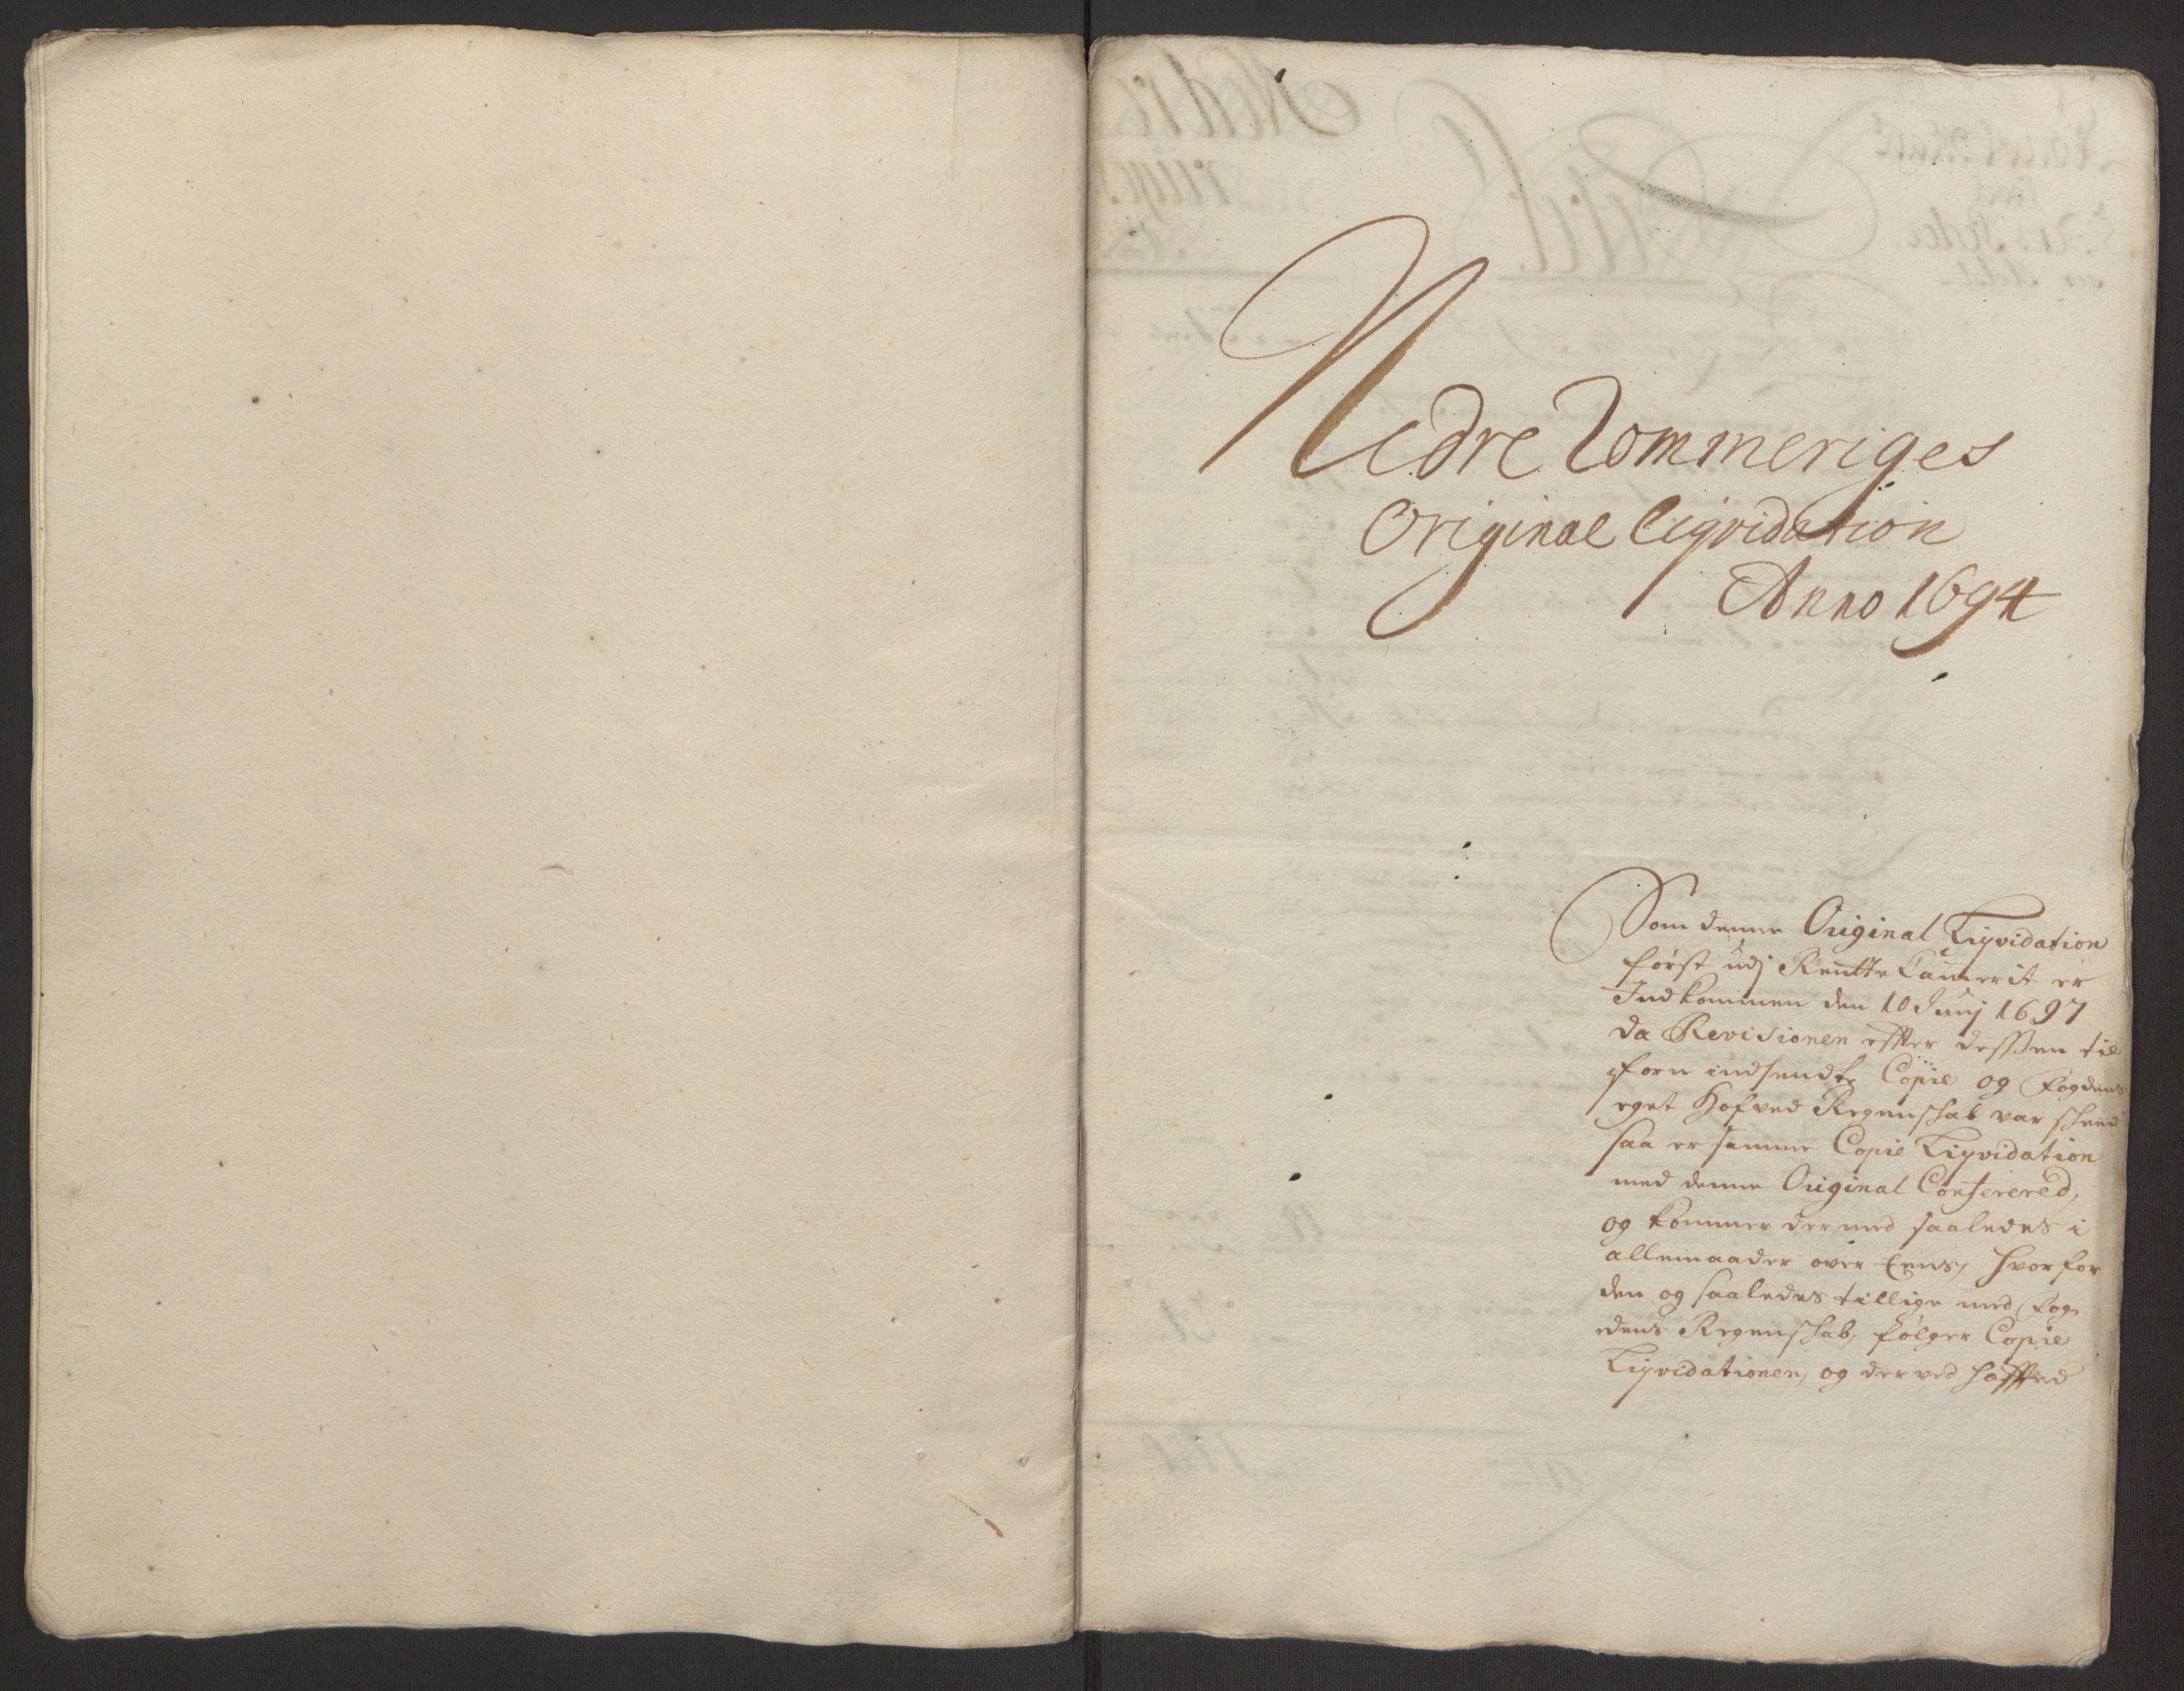 Nedre Rommeriges
Original Liqvidation
Anno 1694
Som denne Original Liqvidation
først udj Rentte Cammerit er
Indkommen den 10 Junj 1697
da Revisionen effter dessen til
forn indsendte Copie og Fogdens
eget Hofved Regenschab var scheed
saa er samme Copie Liqvidation
med denne Original Conferered,
og kommer der med saaledes i
allemaader over Eens, hvorfor
den og saaledes tillige med Fog
edens Regenschab, følger Copie
Liqvidationen, og der ved hefftted